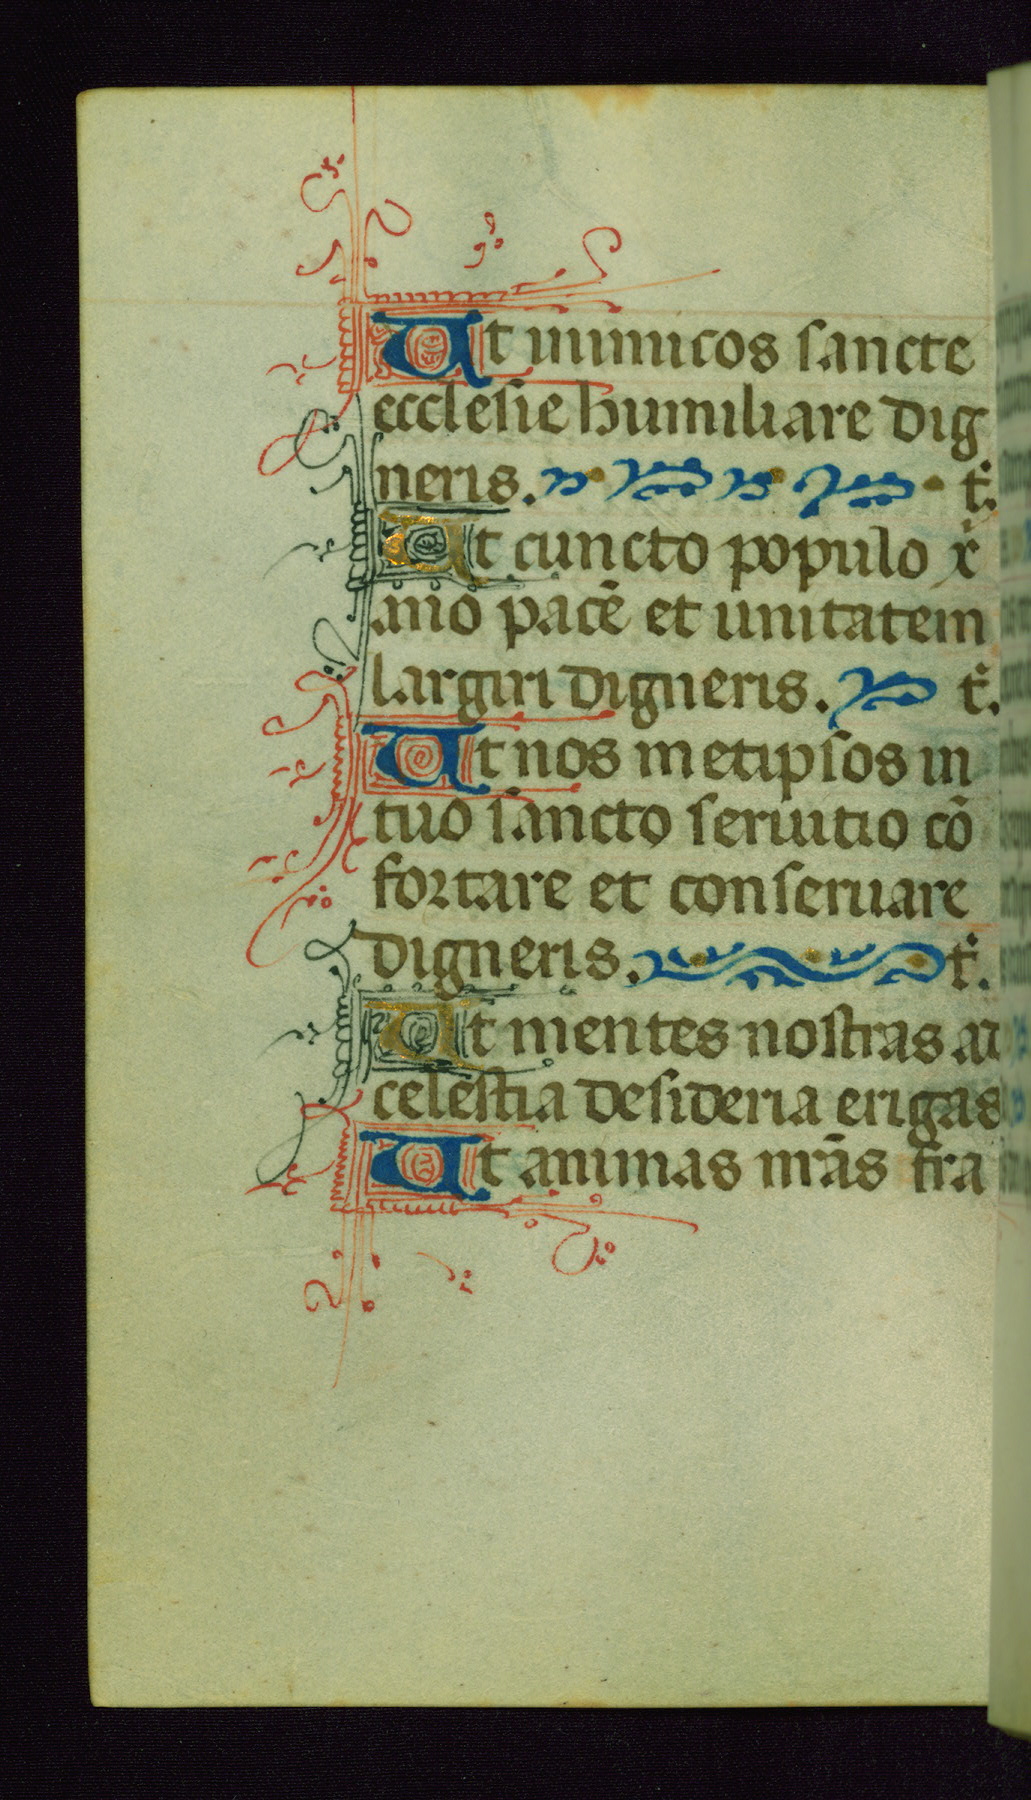 Ut inimicos sancte
ecclesie humiliare dig
neris. t̃.
Ut cuncto populo xp̃i
ano pacẽ et unitatem
largiri digneris. t̃.
Ut nos metipsos in
tuo sancto seruitio cõ
fortare et conseruare
digneris. t̃.
Ut mentes nostras ad
celestia desideria erigas
Ut animas nr̃as fra